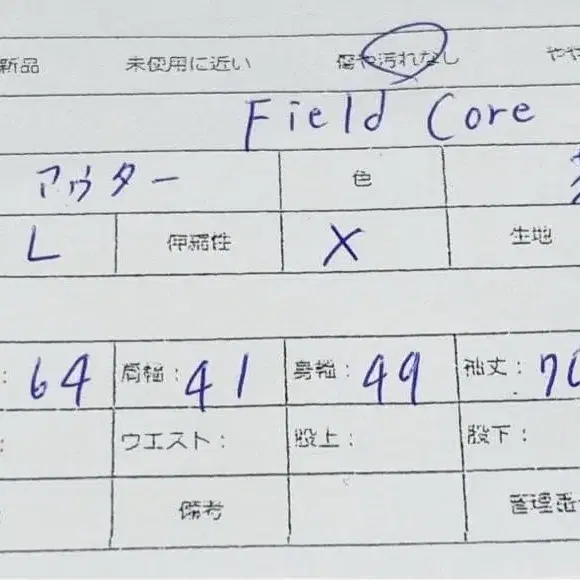 新品 未使用に近い 傷や汚れなし やや
Field Core
アウター 色
L 伸縮性 X 生地
: 64 肩幅: 41 身幅: 49 袖丈: 70
: ウエスト: 股上: 股下:
備考 管理番